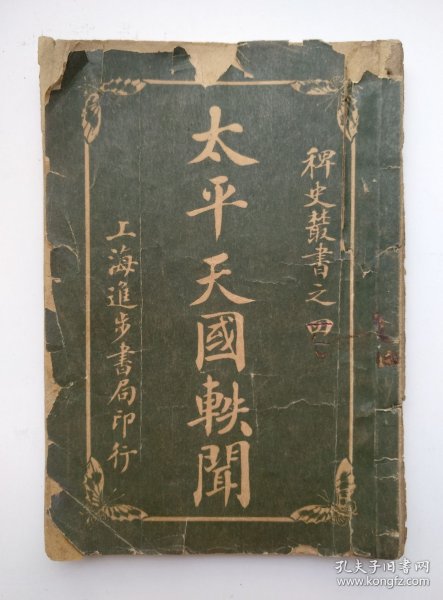 稗史叢書之四
太平天國軼聞
上海進步書局印行
孔夫子旧书网
www.kongfz.com